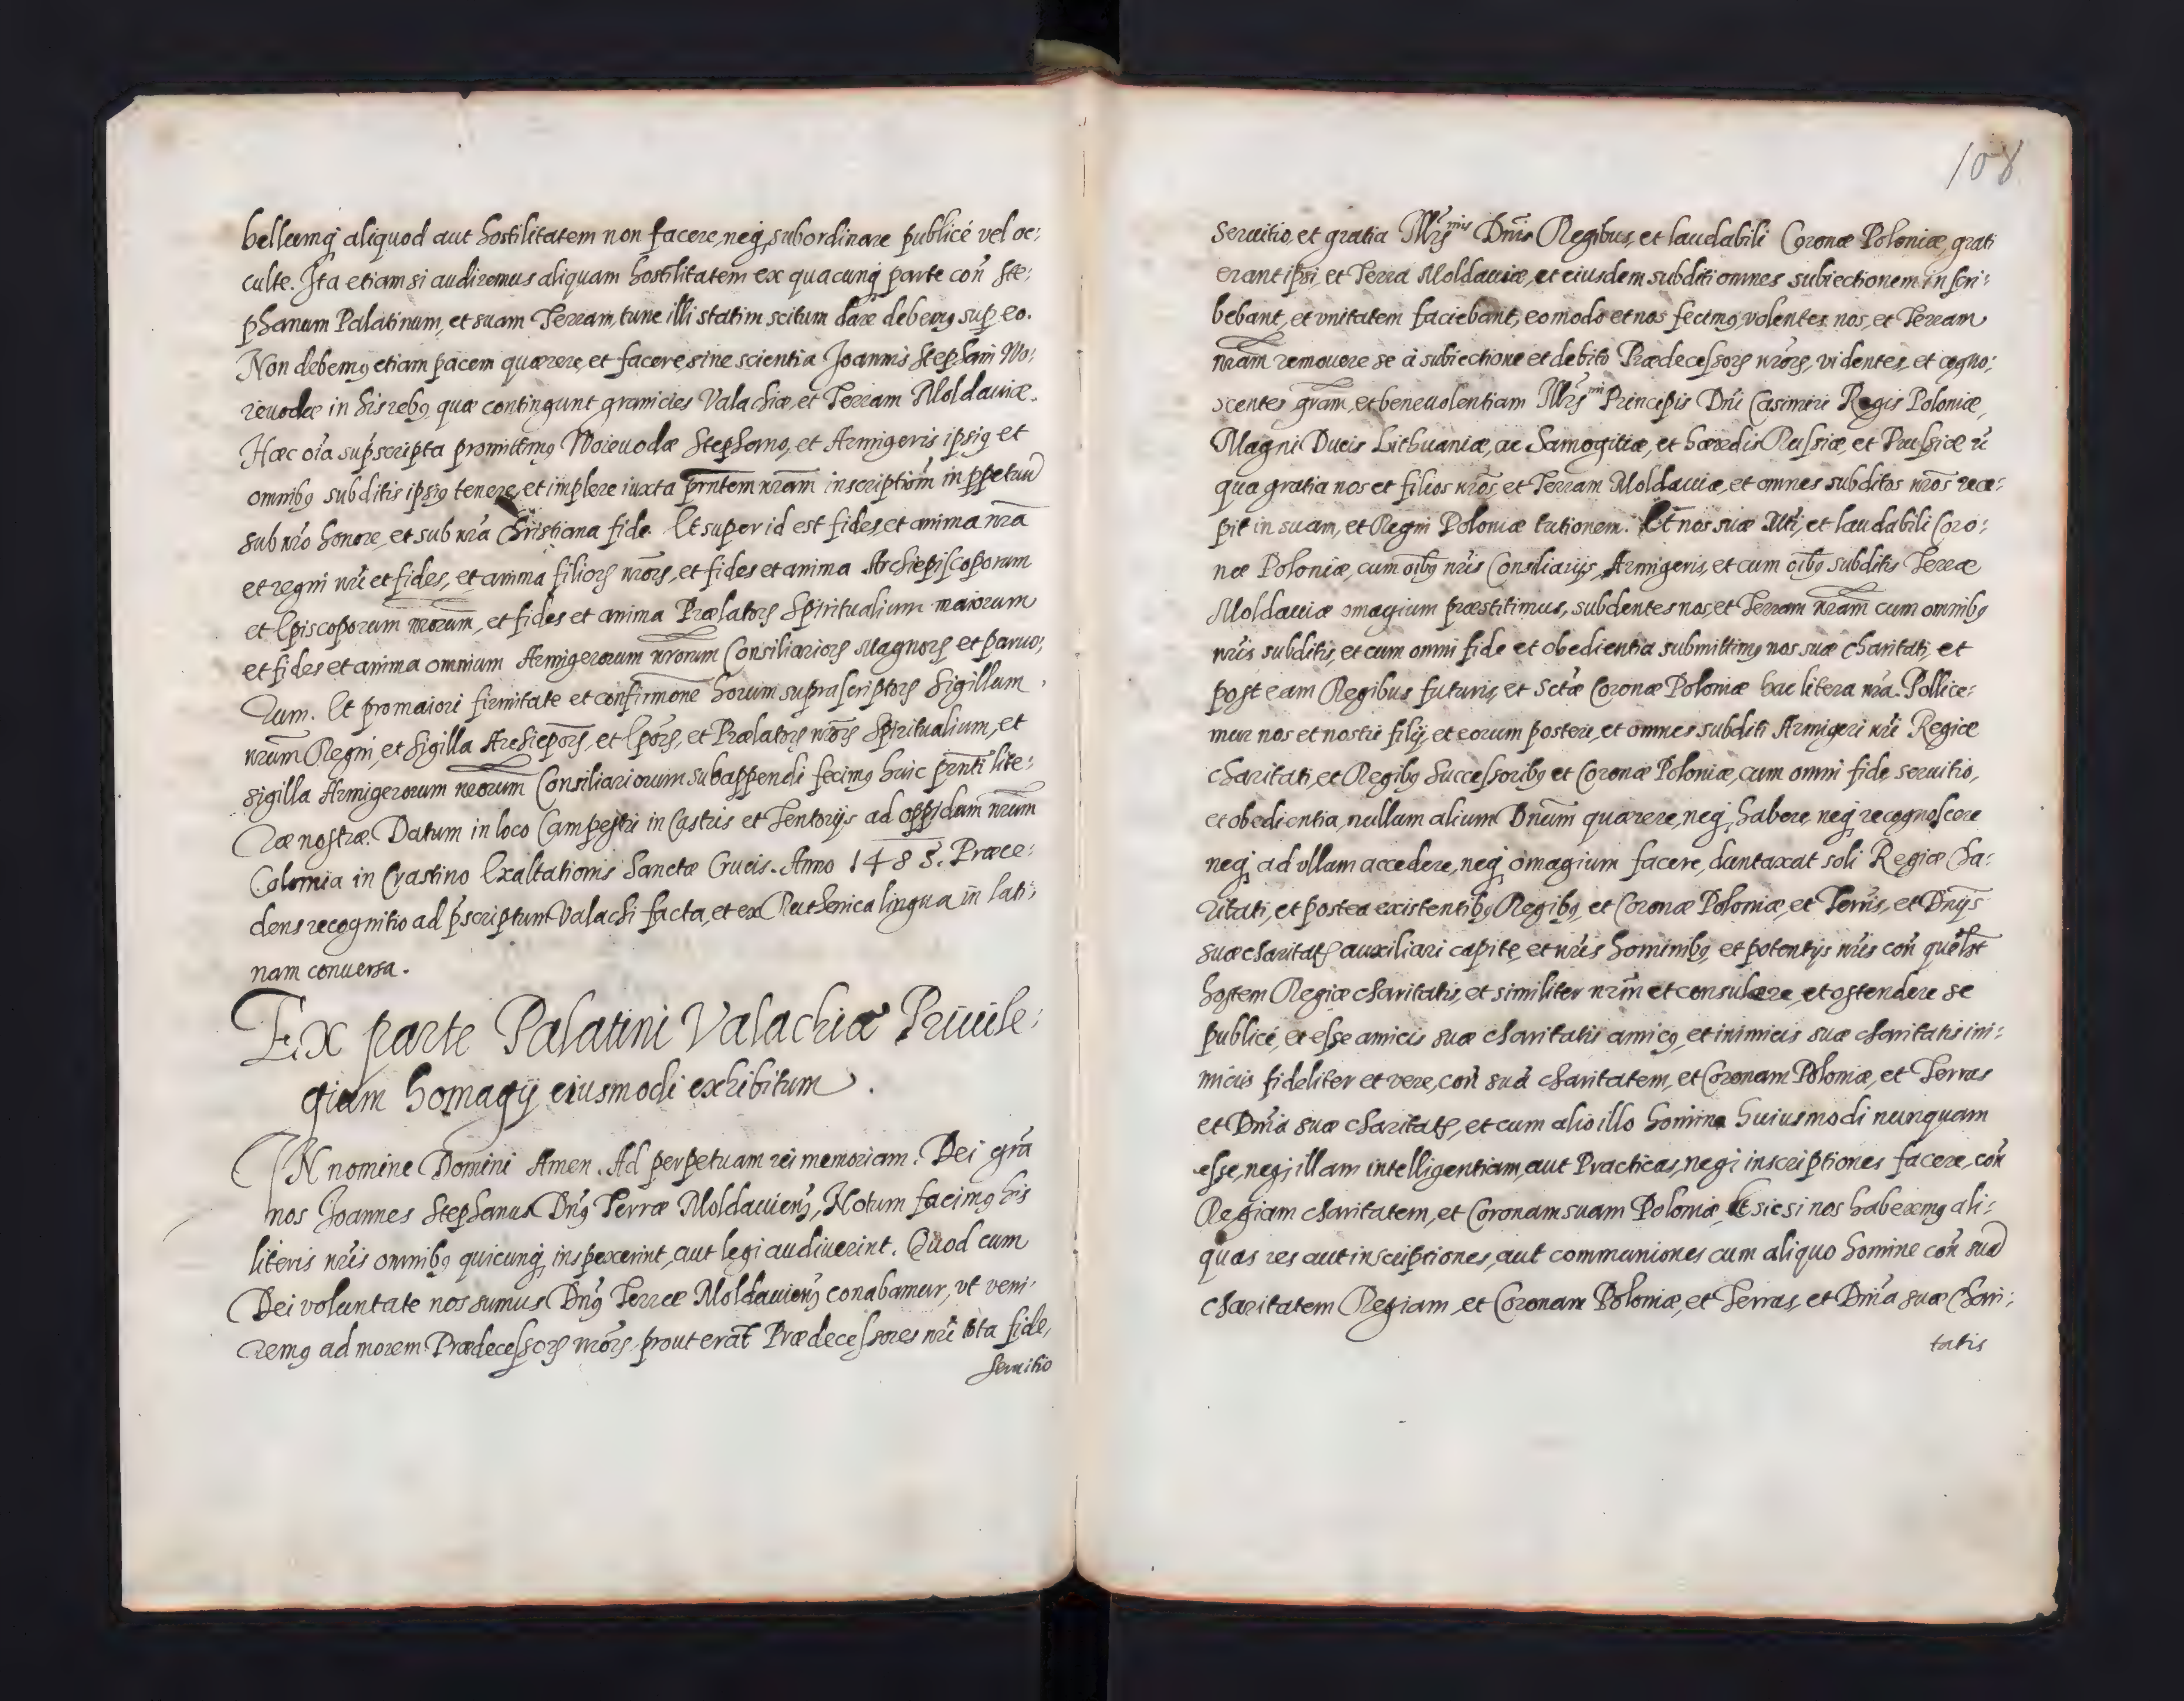 bellumq aliquod aut hostilitatem non facere, neq subordinare publicé vel oc:
culte. Ita etiam si audiremus aliquam hostilitatem ex quacunq parte con̄ Ste:
phanum Palatinum, et suam Terram, tunc illi statim scitum dare debemꝰ sup eo.
Non debemꝰ etiam pacem quærere, et facere, sine scientia Joannis Stephani Wo:
ieuodæ in his rebꝰ quæ contingunt granicies Valachiæ, et Terram Moldauiæ.
Hæc oīa supscripta promittimꝰ Woieuodæ Stephano, et Armigeris ipsiꝰ et
omnibꝰ subditis ipsiꝰ tenere, et implere iuxta pñntem nram inscriptiōm in ppetuū
sub nrō honore, et sub nrā Christiana fide. Et super id est fides, et anima nrā
et regni nrī et fides, et anima filioꝝ nrōꝝ, et fides et anima Archiepiscoporum
et Episcoporum nrorum, et fides et anima Prælatoꝝ Spiritualium maiorum
et fides et anima omnium Armigerorum nrorum Consiliarioꝝ Magnoꝝ et paruo;
rum. Et pro maiori firmitate et confirmōne horum suprascriptoꝝ Sigillum
nrum Regni, et Sigilla Archiepōꝝ, et Epōꝝ, et Prælatoꝝ nrōꝝ Spiritualium, et
sigilla Armigerorum nrorum Consiliariorum subappendi fecimꝰ huic pñnti lite:
ræ nostræ. Datum in loco Campestri in Castris et Tentorijs ad oppidum nrum
Colomia in Crastino Exaltationis Sanctæ Crucis. Anno 1485. Præce:
dens recognitio ad pscriptum Valachi facta, et ex Ruthenica lingua in lati:
nam conuersa.
Ex parte Palatini Valachiæ Priuile:
gium homagij eiusmodi exhibitum.
IN nomine Domini Amen. Ad perpetuam rei memoriam. Dei grā
nos Joannes Stephanus Dnꝰ Terræ Moldauienꝫ, Notum facimꝰ his
literis nrīs omnibꝰ quicunq inspexerint, aut legi audiuerint. Quod cum
Dei voluntate nos sumus Dnꝰ Terræ Moldauienꝫ conabamur, vt veni:
remꝰ ad morem Prædecessoꝝ nrōꝝ, prout erāt Prædecessores nrī tota fide,
seruitio
108
seruitio, et gratia Illrꝫmis Dnīs Regibus, et laudabili Coronæ Poloniæ, grati
erant ipsi, et Terra Moldauiæ, et eiusdem subditi omnes subiectionem inscri:
bebant, et vnitatem faciebant, eo modo et nos fecimꝰ, volentes nos, et Terram
nram remouere se à subiectione et debito Prædecessoꝝ nrōꝝ, videntes, et cogno:
scentes gram, et beneuolentiam Illrꝫmi Principis Dnī Casimiri Regis Poloniæ,
Magni Ducis Lithuaniæ, ac Samogitiæ, et hæredis Russiæ, et Prussiæ ī
qua gratia nos et filios nrōs, et Terram Moldauiæ, et omnes subditos nrōs rece:
pit in suam, et Regni Poloniæ tutionem. Et nos suæ Mti, et laudabili Coro:
næ Poloniæ, cum oībꝰ nrīs Consiliarijs, Armigeris, et cum oībꝰ subditis Terræ
Moldauiæ omagium præstitimus, subdentes nos, et Terram nram cum omnibꝰ
nrīs subditis, et cum omni fide et obedientia submittimꝰ nos suæ charitati, et
post eam Regibus futuris, et Sctæ Coronæ Poloniæ hac litera nrā. Pollice:
mur nos et nostri filij, et eorum posteri, et omnes subditi Armigeri nrī Regiæ
charitati, et Regibꝰ Successoribꝰ et Coronæ Poloniæ, cum omni fide, seruitio,
et obedientia, nullum alium Dnum quærere, neq habere, neq recognoscere
neq ad vllam accedere, neq omagium facere, duntaxat soli Regiæ Cha:
ritati, et postea existentibꝰ Regibꝰ, et Coronæ Poloniæ, et Terris, et Dnijs
suæ charitatꝭ auxiliari capite, et nrīs hominibꝰ, et potentijs nrīs con̄ quēlbt
hostem Regiæ charitatis, et similiter nrm̄ et consulere, et ostendere se
publicé, et esse amicis suæ charitatis amicꝰ, et inimicis suæ charitatis ini:
micus fideliter et vere, con̄ suā charitatem, et Coronam Poloniæ, et Terras
et Dnīa suæ charitatꝭ, et cum alio illo homine huiusmodi nunquam
esse, neq illam intelligentiam, aut Practicas, neq inscriptiones facere, con̄
Regiam charitatem, et Coronam suam Poloniæ. Et sic si nos haberemꝰ ali:
quas res aut inscriptiones, aut communiones cum aliquo homine con̄ suā
charitatem Regiam, et Coronam Poloniæ, et Terras, et Dnīa suæ Chari:
tatis